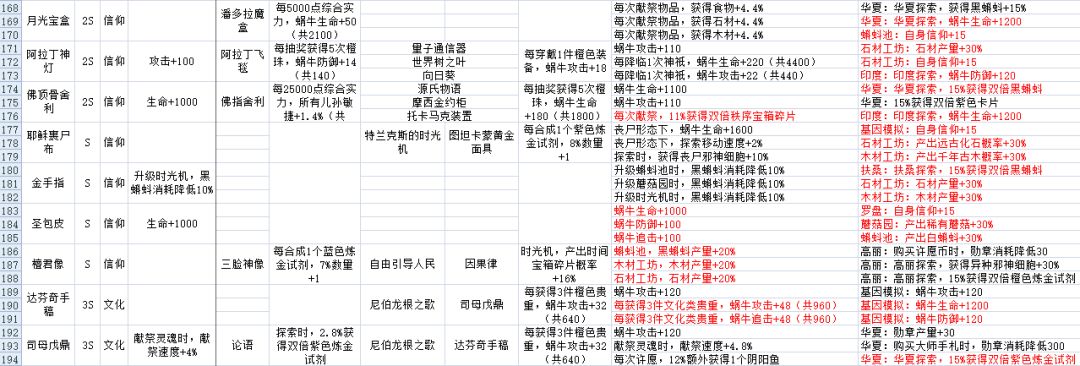 168
169
170
月光宝盒
2S
信仰
潘多拉魔
盒
每5000点综合实
力，蜗牛生命+50
（共2100）
每次献祭物品，获得食物+4.4%
每次献祭物品，获得石材+4.4%
每次献祭物品，获得木材+4.4%
华夏：华夏探索，获得黑蝌蚪+15%
华夏：华夏探索，蜗牛生命+1200
蝌蚪池：自身信仰+15
171
172
173
阿拉丁神
灯
2S
信仰
攻击+100
阿拉丁飞
毯
每抽奖获得5次橙
珠，蜗牛防御+14
（共140）
量子通信器
世界树之叶
向日葵
每穿戴1件橙色装
备，蜗牛攻击+18
蜗牛攻击+110
每降临1次神祇，蜗牛生命+220（共4400）
每降临1次神祇，蜗牛攻击+22（共440）
石材工坊：石材产量+30%
石材工坊：自身信仰+15
印度：印度探索，蜗牛防御+120
174
175
176
佛顶骨舍
利
2S
信仰
生命+1000
佛指舍利
每25000点综合实
力，所有儿孙敏
捷+1.4%（共
源氏物语
摩西金约柜
托卡马克装置
每抽奖获得5次橙
珠，蜗牛生命
+180（共1800）
蜗牛生命+1100
蜗牛攻击+110
每次献祭，11%获得双倍秩序宝箱碎片
华夏：华夏探索，15%获得双倍黑蝌蚪
华夏：15%获得双倍紫色卡片
印度：印度探索，蜗牛生命+1200
177
178
179
耶稣裹尸
布
S
信仰
特兰克斯的时光
机
图坦卡蒙黄金
面具
每合成1个紫色炼
金试剂，8%数量
+1
丧尸形态下，蜗牛生命+1600
丧尸形态下，探索移动速度+2%
探索时，获得丧尸邪神细胞+10%
基因模拟：自身信仰+15
石材工坊：产出远古化石概率+30%
木材工坊：产出千年古木概率+30%
180
181
182
金手指
S
信仰
升级时光机，黑
蝌蚪消耗降低10%
升级蝌蚪池时，黑蝌蚪消耗降低10%
升级蘑菇园时，黑蝌蚪消耗降低10%
升级时光机时，黑蝌蚪消耗降低10%
扶桑：扶桑探索，15%获得双倍黑蝌蚪
石材工坊：石材产量+30%
木材工坊：木材产量+30%
183
184
185
圣包皮
S
信仰
生命+1000
蜗牛生命+1000
蜗牛防御+100
蜗牛追击+100
罗盘：自身信仰+15
蘑菇园：产出稀有蘑菇+30%
蝌蚪池：产出白蝌蚪+30%
186
187
188
檀君像
S
信仰
三脸神像
每合成1个蓝色炼
金试剂，7%数量
+1
自由引导人民
因果律
时光机，产出时间
宝箱碎片概率
+16%
蝌蚪池，黑蝌蚪产量+20%
木材工坊，木材产量+20%
石材工坊，石材产量+20%
高丽：购买许愿币时，勋章消耗降低30
高丽：高丽探索，获得异种邪神细胞+30%
高丽：高丽探索，15%获得双倍橙色炼金试剂
189
190
191
达芬奇手
稿
3S
文化
尼伯龙根之歌
司母戊鼎
每获得3件橙色贵
重，蜗牛攻击+32
（共640）
蜗牛攻击+120
每获得3件文化类贵重，蜗牛攻击+48（共960）
每获得3件文化类贵重，蜗牛追击+48（共960）
基因模拟：蜗牛攻击+120
基因模拟：蜗牛生命+1200
基因模拟：蜗牛防御+120
192
193
194
司母戊鼎
3S
文化
献祭灵魂时，献
祭速度+4%
论语
探索时，2.8%获
得双倍紫色炼金
试剂
尼伯龙根之歌
达芬奇手稿
每获得3件橙色贵
重，蜗牛攻击+32
（共640）
蜗牛攻击+120
献祭灵魂时，献祭速度+4.8%
每次许愿，12%额外获得1个阴阳鱼
华夏：勋章产量+30
华夏：购买大师手札时，勋章消耗降低300
华夏：华夏探索，15%获得双倍紫色炼金试剂